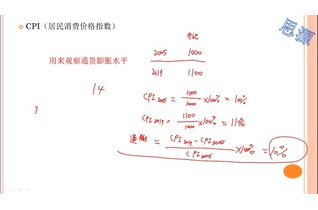 CPI（居民消费价格指数）
思源
用来观察通货膨胀水平
2005 1000
2019 1100
14
CPI2005 = 1000/1000 ×100% = 100%
CPI2019 = 1100/1000 ×100% = 11%
通胀 = CPI2019 - CPI2005 / CPI2005 ×100% = 10%